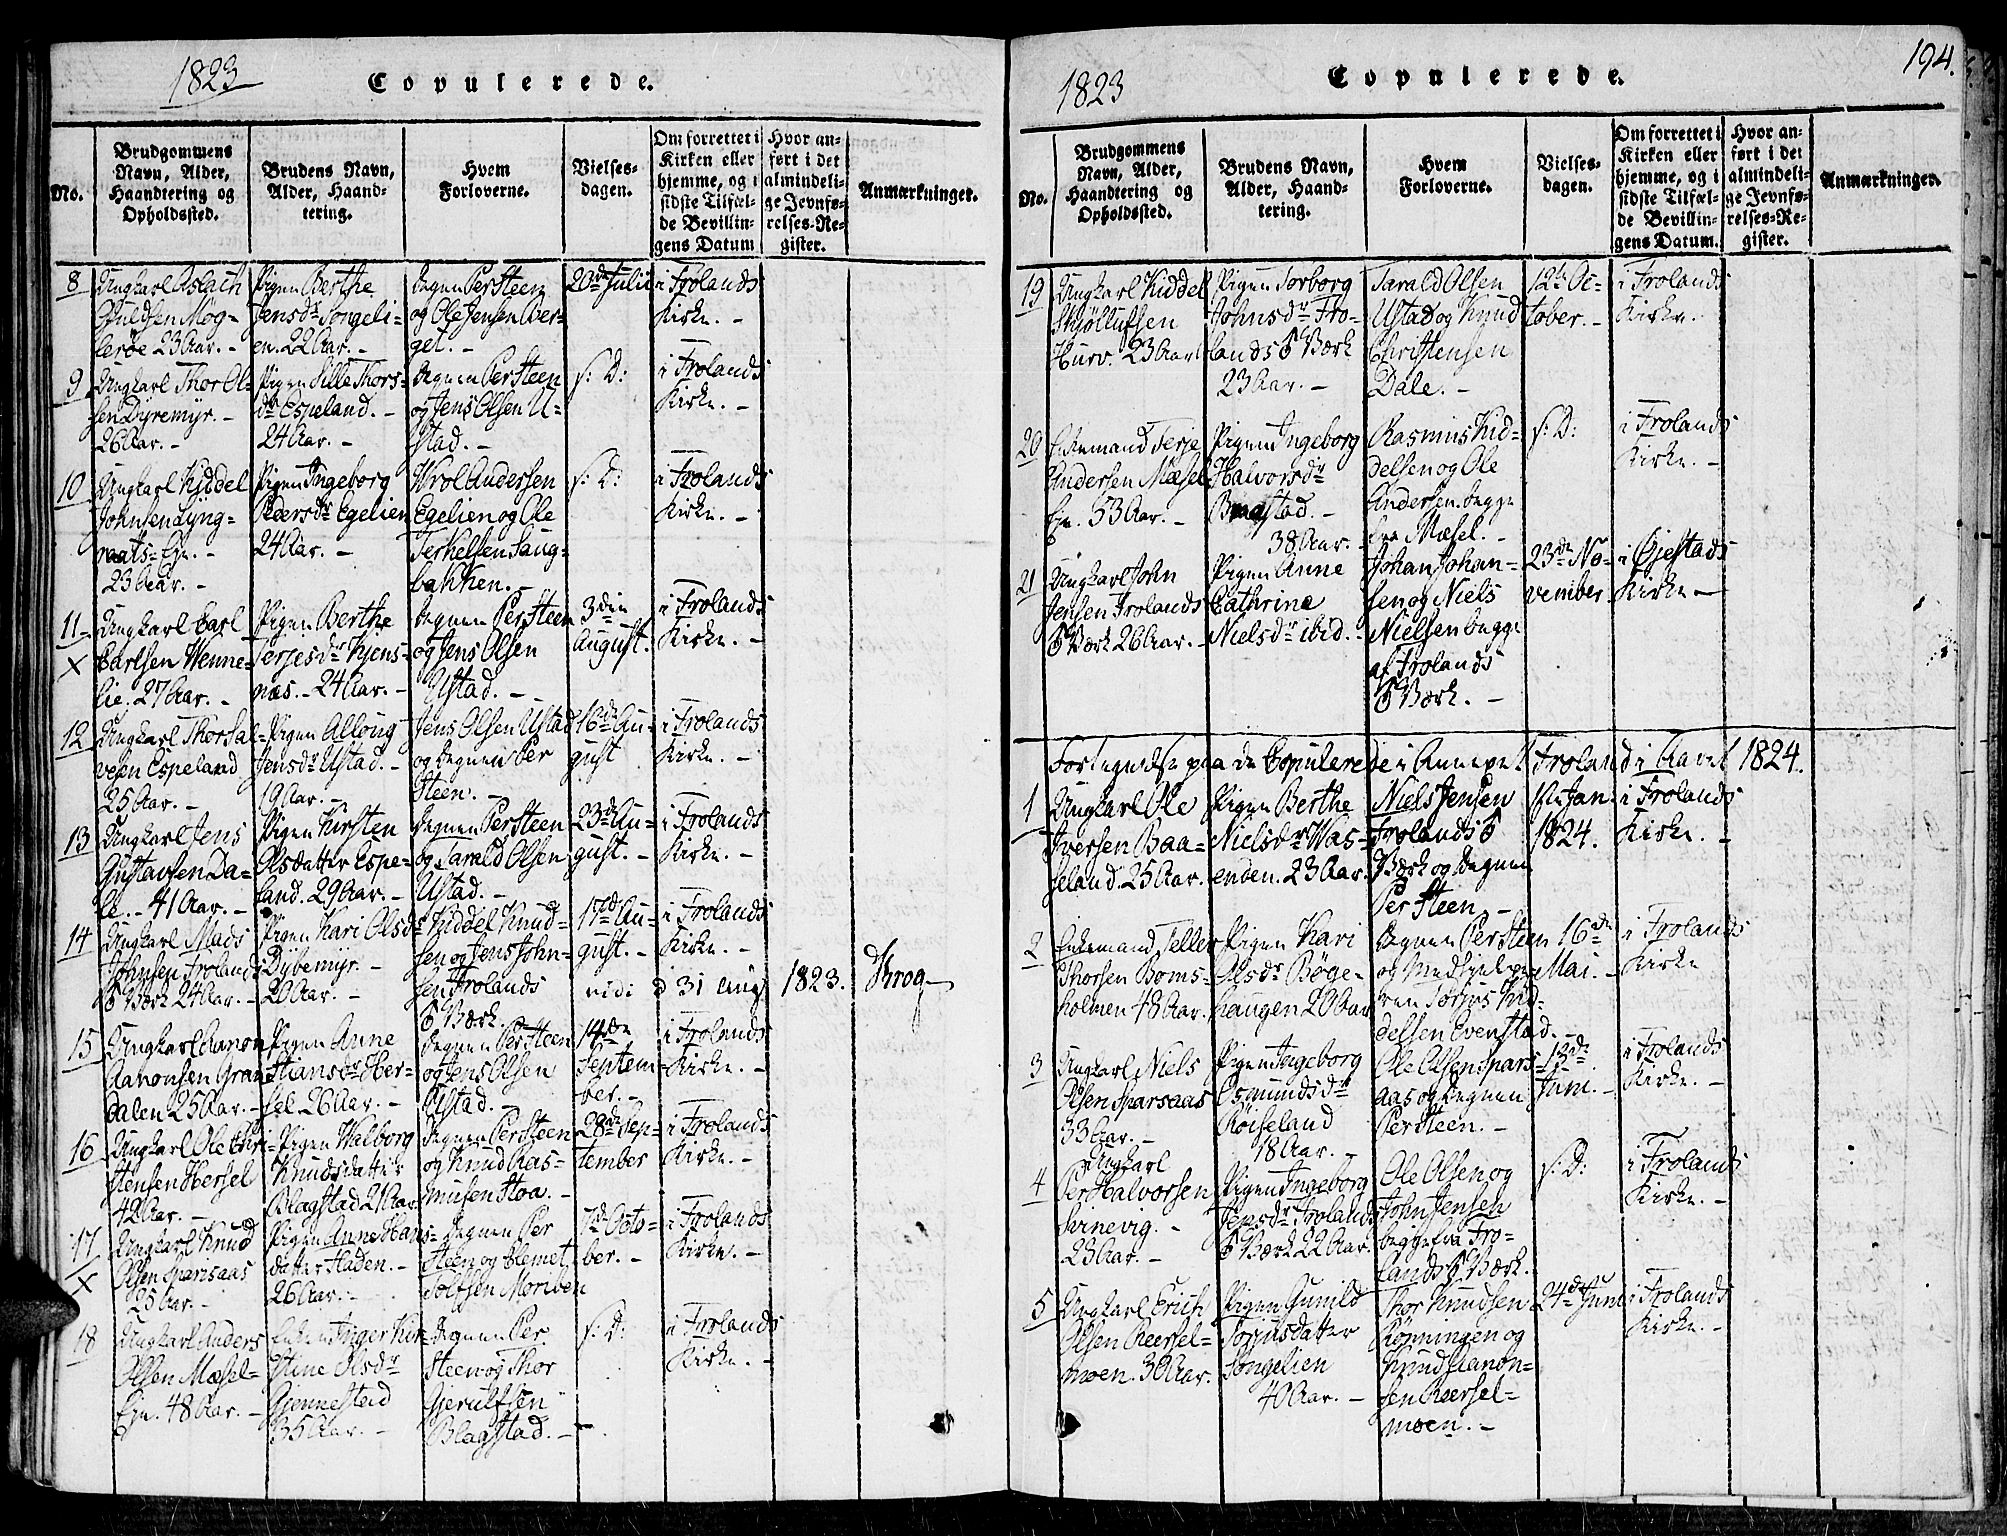 1823
Copulerede.
No.
Brudgommens Navn, Alder, Haandtering og Opholdssted.
Brudens Navn, Alder, Haandtering.
Hvem Forloverne.
Vielsesdagen.
Om forrettet i Kirken eller hjemme, og i sidste Tilfælde Bevillingens Datum
Hvor anført i det almindelige Jevnførelses-Register.
Anmærkninger.
8
Ungkarl Aslach
23 Aar. -
Pigen Berthe
Jensdr Songelien. 22 Aar. -
Degnen Per Steen
og Ole Jensen Berget. -
20de Julii
i Frolands
Kirke. -
9
Ungkarl Thor Olsen
Dyremyr. -
26 Aar. -
Pigen Sille Thorsdr
Espeland. -
24 Aar. -
Degnen Per Steen
og Jens Olsen Ustad. -
s: D:
i Frolands
Kirke. -
10
Ungkarl Kiddel
Johnsen
23 Aar. -
Pigen Ingeborg
Pedersdr Egelien
24 Aar. -
Wrol Andersen
Egelien og Ole
Terkelsen Saugbakken. -
s: D:
i Frolands
Kirke. -
11
X
Ungkarl Carl
Carlsen Wennelie. 27 Aar. -
Pigen Berthe
Terjesdr Kjensnæs. - 24 Aar. -
Degnen Per Steen
og Jens Olsen
Ustad. -
3die
August.
i Frolands
Kirke. -
12
Ungkarl Thor Salvesen
Espeland
25 Aar. -
Pigen Alloug
Jensdr Ustad. -
19 Aar. -
Jens Olsen Ustad
og Degnen Per
Steen. -
16de August
i Frolands
Kirke. -
13
Ungkarl Jens
Gustavsen Dale. - 41 Aar. -
Pigen Kirsten
Olsdatter Espeland. 29 Aar. -
Degnen Per Steen
og Tarald Olsen
Ustad. -
23de August. -
i Frolands
Kirke. -
14
Ungkarl Mads
Johnsen Frolands
Værk 24 Aar. -
Pigen Kari Olsdr
Dybemyr. -
20 Aar. -
Kiddel Knudsen
og Jens Johnsen
Frolands
Værk.
17de August. -
i Frolands
Kirke. -
vidi d 31 Aug 1823. Krog
15
Ungkarl Aanon
Aanonsen Grandalen 25 Aar. -
Pigen Anne
Stiansdr Hersel. 26 Aar. -
Degnen Per Steen
og Jens Olsen
Ustad. -
14de
September. -
i Frolands
Kirke. -
16
Ungkarl Ole Christensen
Hersel
42 Aar. -
Pigen Walborg
Knudsdatter
Blagstad 21 Aar
Degnen Per Steen
og Knud Rasmusen
Stoa. -
28de September
i Frolands
Kirke. -
17
X
Ungkarl Knud
Olsen Sparsaas
25 Aar. -
Pigen Anne Hansdatter
Staden. -
26 Aar. -
Degnen Per
Steen og Clemet
Tolfsen Morven
7de October. -
i Frolands
Kirke. -
18
Ungkarl Anders
Olsen Mæsel-
Eje. 48 Aar. -
Enken Inger Kirstine
Olsdr
Gjennestad
35 Aar. -
Degnen Per
Steen og Thor
Gjerulfsen
Blagstad. -
s: D:
i Frolands
Kirke. -
194.
1823
Copulerede.
No.
Brudgommens Navn, Alder, Haandtering og Opholdssted.
Brudens Navn, Alder, Haandtering.
Hvem Forloverne.
Vielsesdagen.
Om forrettet i Kirken eller hjemme, og i sidste Tilfælde Bevillingens Datum.
Hvor anført i det almindelige Jevnførelses-Register.
Anmærkninger.
19
Ungkarl Kiddel
Hurv. 23 Aar
Pigen Torborg
Johnsdr Frolands Værk
23 Aar. -
Tarald Olsen
Ustad og Knud
Christensen
Dale. -
12te October. -
i Frolands
Kirke. -
20
Enkemand Terje
Andersen Mæsel
Eje. 53 Aar. -
Pigen Ingeborg
Halvorsdr
Bragstad. -
38 Aar. -
Rasmus Kiddelsen
og Ole
Andersen begge
fra Mæsel. -
s: D:
i Frolands
Kirke. -
21
Ungkarl John
Jensen Frolands
Værk 26 Aar. -
Pigen Anne
Cathrine
Nielsdr ibid. -
Johan Johansen
og Niels
Nielsen begge
af Frolands
Værk. -
23de November
i Øjestads
Kirke -
Fortegnelse paa de Copulerede i Annexet Froland i Aaret 1824.
1
Ungkarl Ole
Iversen Baaseland. 25 Aar.
Pigen Berthe
Nielsdr Wasenden. 23 Aar.
Niels Jensen
Frolands
Værk og Degnen
Per Steen -
1ste Jan.
1824.
i Frolands
Kirke. -
2
Enkemand Tellef
Thorsen Bomsholmen 48 Aar.
Pigen Kari
Olsdr Bøgehaugen 20 Aar
Degnen Per Steen
og Medhjelperen
Torjus Kiddelsen
Evenstad. -
16de
Mai. -
i Frolands
Kirke
3
Ungkarl Niels
Olsen Sparsaas
33 Aar. -
Pigen Ingeborg
Osmundsdr
Røiseland
18 Aar. -
Ole Olsen Sparsaas
og Degnen
Per Steen. -
13de
Juni. -
i Frolands
Kirke. -
4
Ungkarl
Per Halvorsen
Svinevig. -
23 Aar. -
Pigen Ingeborg
Jensdr Frolands
Værk 22 Aar.
Ole Olsen og
John Jensen
begge fra Frolands
Værk.
s: D:
i Frolands
Kirke. -
5
Ungkarl Erich
Olsen Reerselmoen. 30 Aar.
Pigen Gunild
Torjusdatter
Songelien
40 Aar. -
Thor Knudsen
Rønningen og
Knud Aanonsen
Reerselmoen. -
24de Juni
i Frolands
Kirke. -